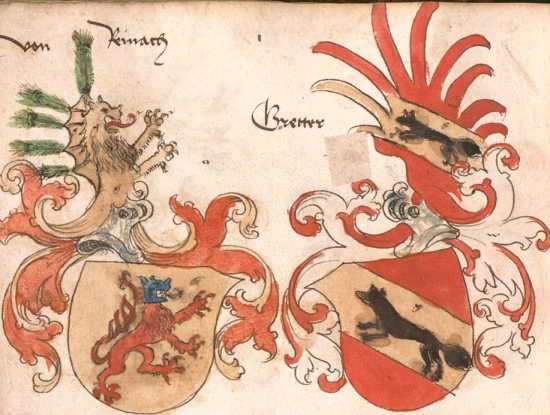 von Reinach
Gretter